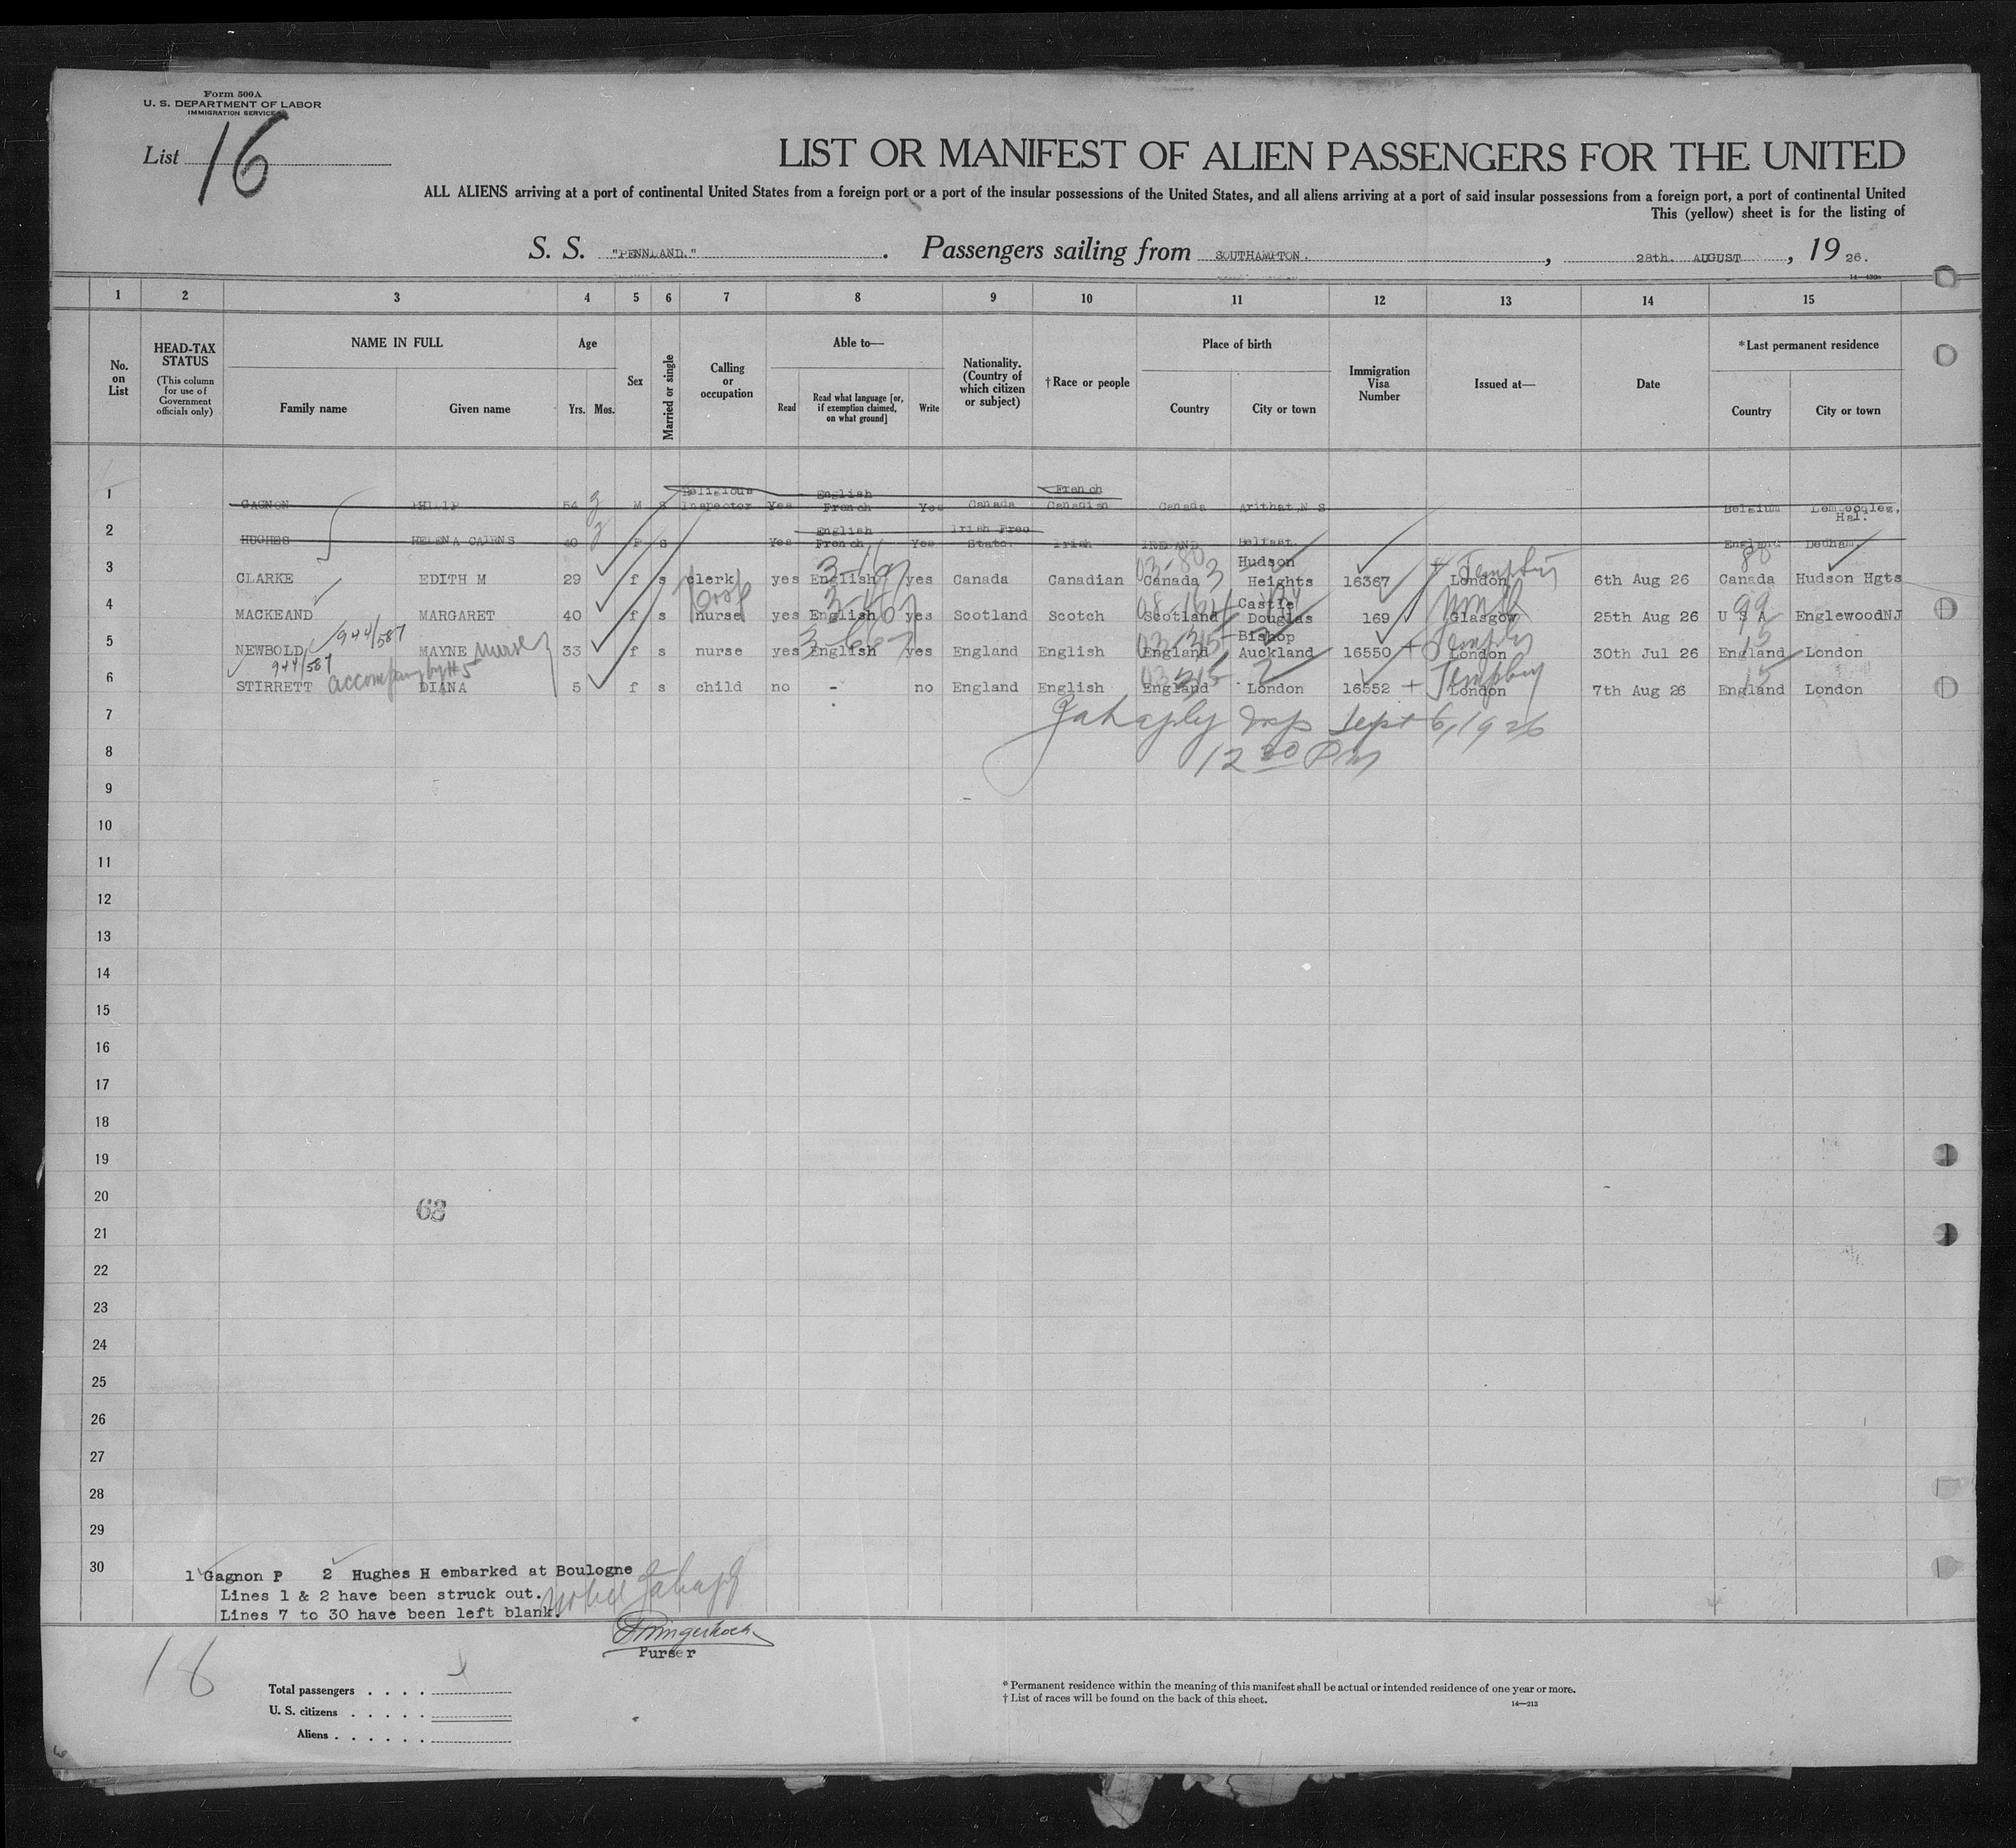 Form 500A
U. S. DEPARTMENT OF LABOR
IMMIGRATION SERVICE
List 16
LIST OR MANIFEST OF ALIEN PASSENGERS FOR THE UNITED
ALL ALIENS arriving at a port of continental United States from a foreign port or a port of the insular possessions of the United States, and all aliens arriving at a port of said insular possessions from a foreign port, a port of continental United
This (yellow) sheet is for the listing of
S. S. "PENNLAND." . Passengers sailing from SOUTHAMPTON. , 28th. AUGUST , 19 26.
1 2 3 4 5 6 7 8 9 10 11 12 13 14 15
No. on List
HEAD-TAX STATUS (This column for use of Government officials only)
NAME IN FULL Family name Given name
Age Yrs. Mos.
Sex
Married or single
Calling or occupation
Able to— Read Read what language [or, if exemption claimed, on what ground] Write
Nationality. (Country of which citizen or subject)
†Race or people
Place of birth Country City or town
Immigration Visa Number
Issued at—
Date
*Last permanent residence Country City or town
1 GAGNON PHILIP 54 M S Religious Inspector Yes English French Yes Canada French Canadian Canada Arithat, N S Belgium Hal.
2 HUGHES HELENA CAIRNS 40 F S Yes English French Yes Irish Free State. Irish IRELAND Belfast. England Dedham
3 CLARKE EDITH M 29 f s clerk yes English yes Canada Canadian Canada Hudson Heights 16367 London 6th Aug 26 Canada Hudson Hgts
4 MACKEAND MARGARET 40 f s nurse yes English yes Scotland Scotch Scotland Castle Douglas 169 Glasgow 25th Aug 26 U S A EnglewoodNJ
5 NEWBOLD 944/587 MAYNE nurse 33 f s nurse yes English yes England English England Bishop Auckland 16550 London 30th Jul 26 England London
944/587 accompany by #5
6 STIRRETT DIANA 5 f s child no - no England English England London 16552 London 7th Aug 26 England London
7
Sept 6, 1926
8
12 30 PM
9
10
11
12
13
14
15
16
17
18
19
20
68
21
22
23
24
25
26
27
28
29
30
1 Gagnon P 2 Hughes H embarked at Boulogne
Lines 1 & 2 have been struck out.
Lines 7 to 30 have been left blank.
Purser
16
Total passengers
U. S. citizens
Aliens
* Permanent residence within the meaning of this manifest shall be actual or intended residence of one year or more.
† List of races will be found on the back of this sheet.
14—213